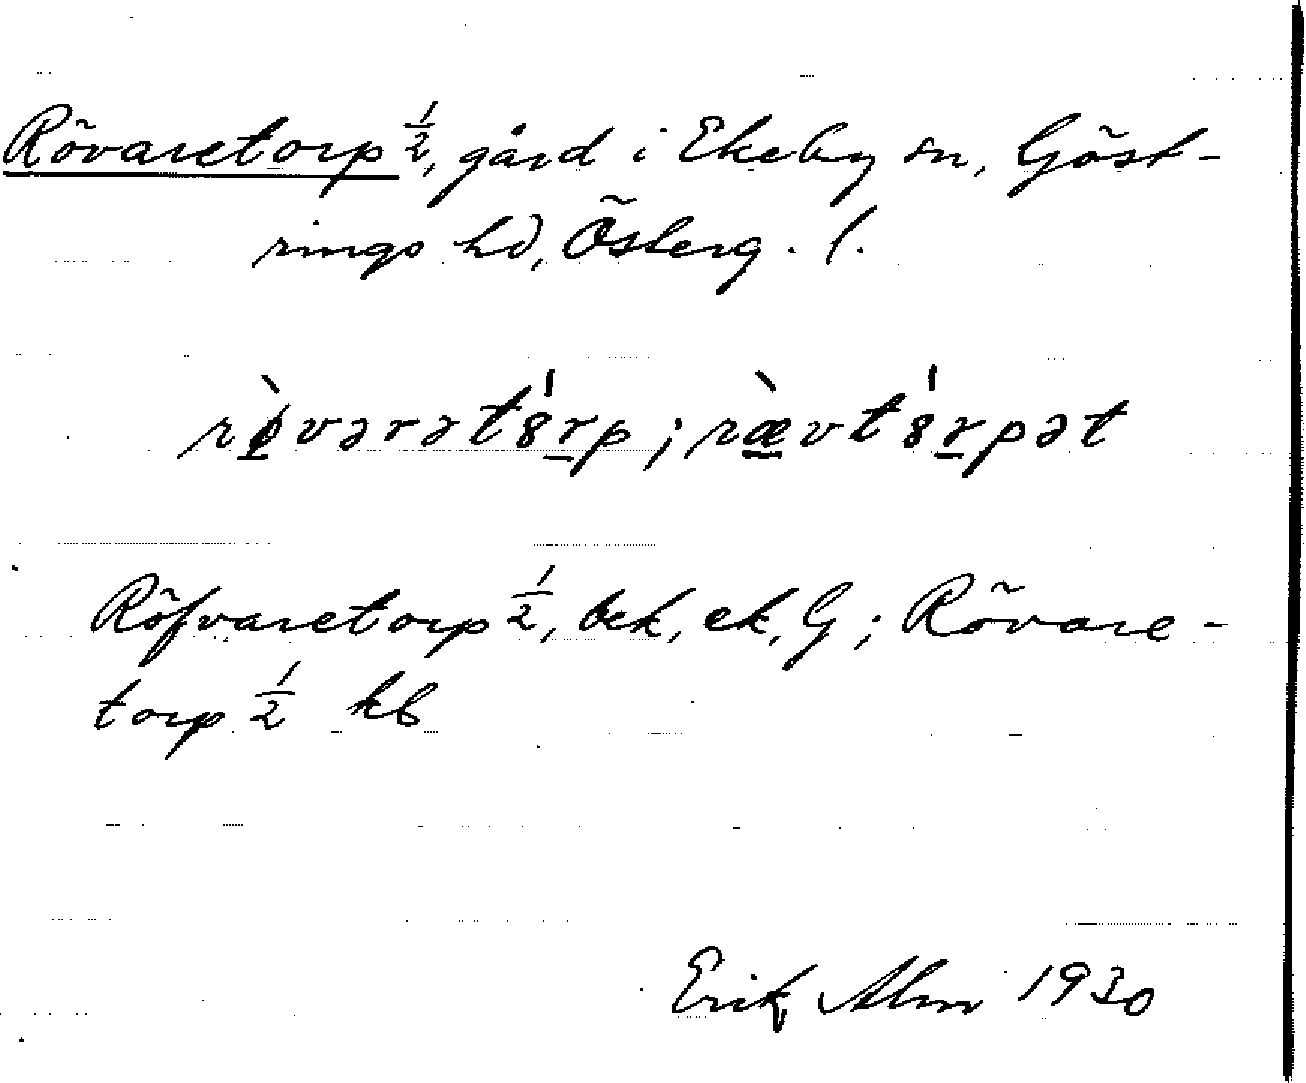 Rövaretorp ½, gård i Ekeby sn, Göst-
rings hd, Österg. l.
rø̀vərət8́rp; ræ̀vt8́rpət
Röfvaretorp ½, bek, ek, G; Rövare-
torp ½ kb
Erik Alm 1930